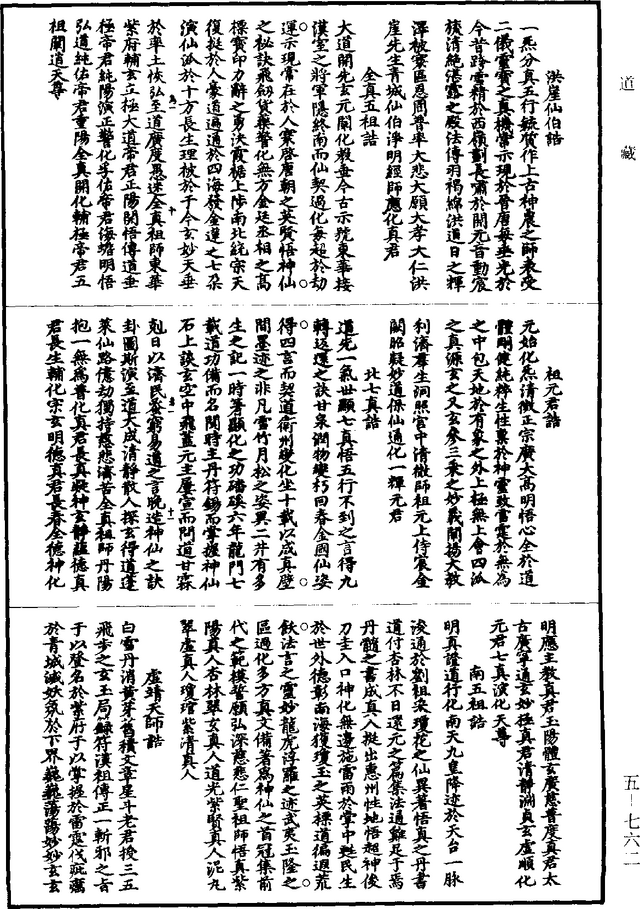 道藏
洪崖仙伯誥
一炁分真五行毓質作上古神農之師表受
二儀靈寶之真機常示現於晉唐每垂光於
今昔跨雪精於西嶺劉長嘯於開元音動宸
旒清絶湛露之殿法傳羽褐綿洪道日之輝
澤被寰區恩周普率大悲大願大孝大仁洪
崖先生青城仙伯淨明經師應化真君
全真五祖誥
大道開先玄元闡化毅並今古示號東華接
漢室之將軍隱終南而仙契過化每超於劫
運示現常在於人寰啓唐朝之英賢悟神仙
之秘訣飛劒貨藥譽化無方金廷丞相之高
標寳印力辭之勇決霞裾上陟南北統宗天
復挺於人豪道遍通於四海發金蓮之七朶
演仙派於十方長生理被於于今玄妙天垂
於率土恢弘至道廣度愚迷全真祖師東華
紫府輔玄立極大道帝君正陽開悟傳道垂
極帝君純陽演正警化孚佑帝君海蟾明悟
弘道純佑帝君重陽全真開化輔極帝君五
祖闡道天尊
祖元君誥
元始化炁清微正宗廣大高明悟心全於道
體剛健純粹生性稟於神靈致雷霆於無爲
之中包天地於有象之外上極無上會四派
之真源玄之又玄參三乘之妙義開揚大教
利濟羣生洞照宮中清微師祖元上侍宸金
闕昭凝妙道保仙通化一輝元君
北七真誥
道先一氣世顯七真悟五行不到之言得九
轉返還之訣甘泉潤物變朽回春金國仙姿
得四言而契道衛州變化坐十載以成真壁
間墨迹之非凡雷竹月松之姿異二井有多
生之記一時著顯化之功磻磎六年龍門七
載道功備而名聞時主丹符錫而掌握神仙
石上談玄空中飛蓋元主屢宣而問道甘霖
剋日以濟民蚕窮易道之言晚造神仙之訣
卦圖斯演至道大成清靜散人探玄得道蓬
萊仙路億劫獨持慈悲濟苦全真祖師丹陽
抱一無爲普化真君長真凝神玄靜藴德真
君長生輔化宗玄明德真君長春全德神化
明應主教真君玉陽體玄廣慈普度真君太
古廣寧通玄妙極真君清靜淵貞玄虛順化
元君七真演化天尊
南五祖誥
明真證道行化南天九皇降迹於天台一脉
浚通於劉祖染瓊花之仙異著悟真之丹書
道付杏林不日還元之篇集法通雞足于焉
丹髓之書成真人挺出惠州性地悟超神俊
刀圭入口神化無邊施雷雨於掌中甦民生
於世外德彰南海獲瓊玉之英標道徧遐荒
飲法言之靈妙龍虎浮羅之迹武夷玉隆之
區過化多方真文備著爲神仙之首冠操前
代之範模誓願弘深慈悲仁聖祖師悟真紫
陽真人杏林翠玄真人道光紫賢真人泥丸
翠虛真人瓊琯紫清真人
虛靖天師誥
白雪丹消黄芽舊積文章星斗老君授三五
飛步之玄玉局籙符漢祖傳正一斬邪之旨
于以登名於紫府于以掌握於雷霆伐祉癘
於青城滅妖氛於下界巍巍蕩蕩妙妙玄玄
五—七六二